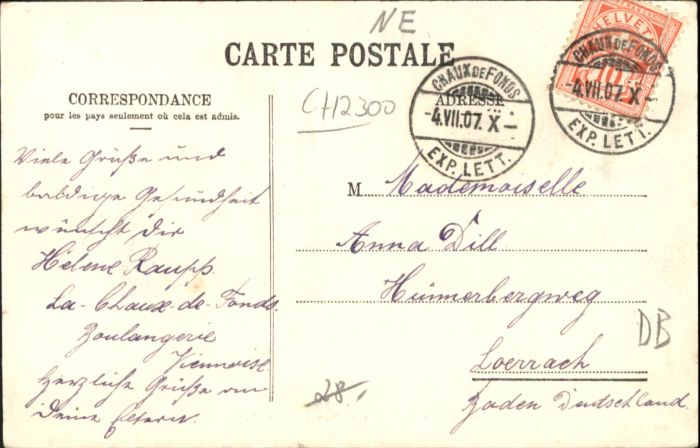 NE
CARTE POSTALE
HELVETIA
10
CHAUX DE FONDS
-4.VII.07. X-
EXP. LETT.
CHAUX DE FONDS
-4.VII.07. X-
EXP. LETT.
CORRESPONDANCE
pour les pays seulement où cela est admis.
CH2300
ADRESSE
Viele Grüße und
baldige Gesundheit
wünscht dir
Helene Raupp
La-Chaux-de-Fonds.
Boulangerie
Viennoise
Herzliche Grüße an
Deine Eltern.
M Mademoiselle
Anna Dill
Hünnerbergweg
Loerrach
Baden Deutschland.
DB
28.